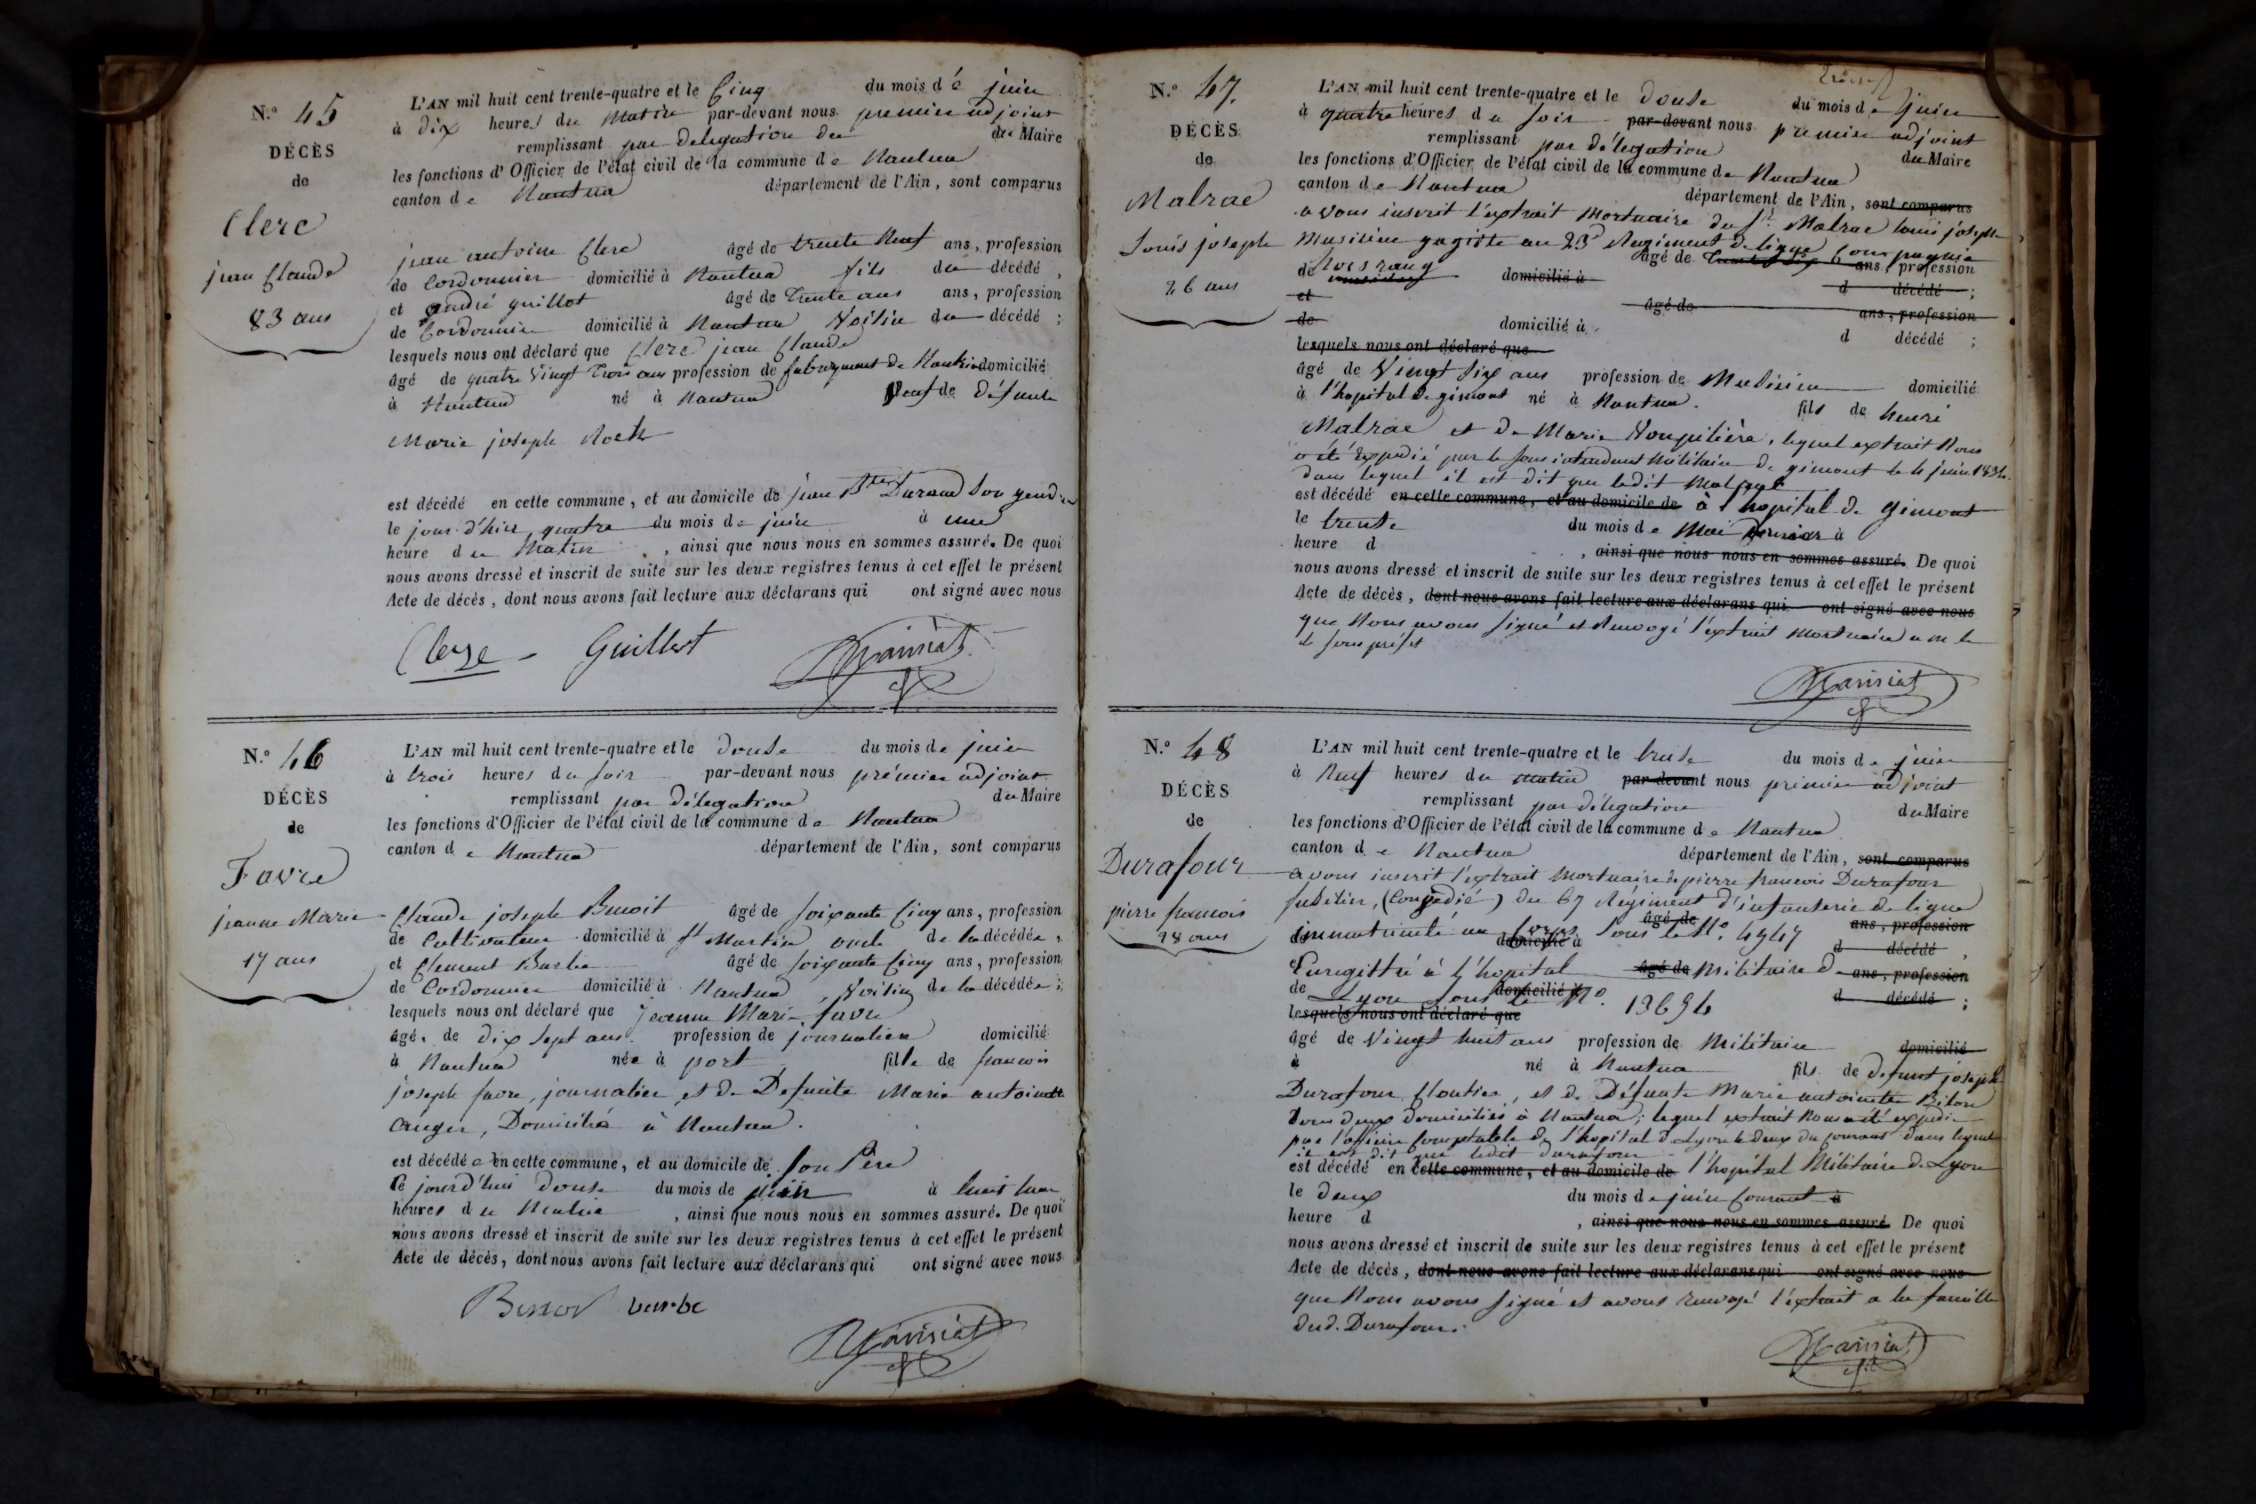 N.º 45
DÉCÈS
de
Clerc
jean Claude
83 ans
L'AN mil huit cent trente-quatre et le Cinq du mois de juin
à dix heures du Matin par-devant nous premier adjoint
remplissant par délégation du du Maire
les fonctions d'Officier de l'état civil de la commune de Nantua
canton de Nantua département de l'Ain, sont comparus
jean antoine Clerc âgé de trente Neuf ans, profession
de Cordonnier domicilié à Nantua fils du décédé,
et andré guillot âgé de Trente ans ans, profession
de Cordonnier domicilié à Nantua Voisin du décédé;
lesquels nous ont déclaré que Clerc jean Claude
âgé de quatre Vingt Trois ans profession de domicilié
à Nantua né à Nantua Veuf de défunte
Marie joseph Roch
est décédé en cette commune, et au domicile de jean Bte Durand Son gendre
le jour d'hier quatre du mois de juin à une
heure du Matin, ainsi que nous nous en sommes assuré. De quoi
nous avons dressé et inscrit de suite sur les deux registres tenus à cet effet le présent
Acte de décès, dont nous avons fait lecture aux déclarans qui ont signé avec nous
Guillot
N.º 46
DÉCÈS
de
Favre
jeanne Marie
17 ans
L'AN mil huit cent trente-quatre et le douse du mois de juin
à trois heures du soir par-devant nous prémier adjoint
remplissant par délégation du Maire
les fonctions d'Officier de l'état civil de la commune de Nantua
canton de Nantua département de l'Ain, sont comparus
Claude joseph Benoit âgé de soixante Cinq ans, profession
de Cultivateur domicilié à St Martin oncle de la décédée,
et Clement Barbe âgé de soixante Cinq ans, profession
de Cordonnier domicilié à Nantua, Voisin de la décédée;
lesquels nous ont déclaré que jeanne Marie favre
âgé, de dix sept ans profession de journalier domicilié
à Nantua née à port fille de francois
joseph favre, journalier, et de Defunte Marie antoinette
Domicilié à Nantua.
est décédée en cette commune, et au domicile de son Père
ce jourd'hui douse du mois de juin à huit heu
heures du Matin, ainsi que nous nous en sommes assuré. De quoi
nous avons dressé et inscrit de suite sur les deux registres tenus à cet effet le présent
Acte de décès, dont nous avons fait lecture aux déclarans qui ont signé avec nous
Benoit barbe
N.º 47.
DÉCÈS
de
Malrae
Louis joseph
26 ans
L'AN mil huit cent trente-quatre et le douse du mois de juin
à quatre heures du soir par-devant nous premier adjoint
remplissant par délégation du Maire
les fonctions d'Officier de l'état civil de la commune de Nantua
canton de Nantua département de l'Ain, sont comparus
avons inscrit l'extrait Mortuaire du Sr Malrae louis joseph
Musicien gagiste au 23e Régiment de ligne Compagnie
âgé de ans, profession
de hors rang domicilié à d décédé;
et âgé de ans, profession
de domicilié à d décédé;
lesquels nous ont déclaré que
âgé de Vingt six ans profession de Musicien domicilié
à l'hopital de gimont né à Nantua. fils de henri
Malrae et de Marie, lequel extrait Nous
a été expédié par le sous intendant Militaire de gimont le 4 juin 1834.
dans lequel il est dit que ledit Malrae
est décédé en cette commune, et au domicile de à l'hopital de gimont
le trente du mois de Mai dernier à
heure d, ainsi que nous nous en sommes assuré. De quoi
nous avons dressé et inscrit de suite sur les deux registres tenus à cet effet le présent
Acte de décès, dont nous avons fait lecture aux déclarans qui ont signé avec nous
que Nous avons signé et Renvoyé l'extrait Mortuaire a m le
le sous préfet
N.º 48
DÉCÈS
de
Durafour
pierre francois
28 ans
L'AN mil huit cent trente-quatre et le treise du mois de juin
à Neuf heures du matin par-devant nous premier adjoint
remplissant par délégation du Maire
les fonctions d'Officier de l'état civil de la commune de Nantua
canton de Nantua département de l'Ain, sont comparus
avons inscrit l'extrait Mortuaire de pierre francois Durafour
fusilier, (Congédié) du 67 Régiment d'infanterie de ligne
âgé de ans, profession
immatriculé au Corps sous le No. 4947
de domicilié à d décédé,
Enregistré à l'hopital âgé de Militaire de ans, profession
de Lyon sous le No. 13694 domicilié à d décédé;
lesquels nous ont déclaré que
âgé de Vingt huit ans profession de Militaire domicilié
à né à Nantua fils de defunt joseph
Durafour Cloutier, et de Défunte Marie antoinette
tous deux domiciliés à Nantua; lequel extrait Nous a été expédié
par l'officier Comptable de l'hopital de Lyon le deux du courant dans lequel
il est dit que ledit durafour
est décédé en cette commune, et au domicile de l'hopital Militaire de Lyon
le deux du mois de juin Courant à
heure d, ainsi que nous nous en sommes assuré. De quoi
nous avons dressé et inscrit de suite sur les deux registres tenus à cet effet le présent
Acte de décès, dont nous avons fait lecture aux déclarans qui ont signé avec nous
que Nous avons signé et avons renvoyé l'extrait a la famille
dud. Durafour.